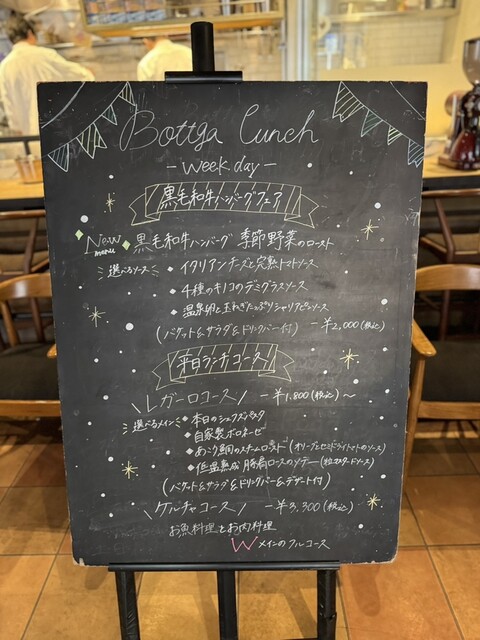 Bottga Lunch
- week day -
黒毛和牛ハンバーグフェア
New menu 黒毛和牛ハンバーグ 季節野菜のロースト
選べるソース ・イタリアンチーズと完熟トマトソース
・4種のキノコのデミグラスソース
・温泉卵と玉ねぎたっぷりシャリアピンソース
(バケット&サラダ&ドリンクバー付) -¥2,000(税込)
平日ランチコース
\レガーロコース/ -¥1,800(税込)～
選べるメイン ・本日のシェフズパスタ
・自家製ボロネーゼ
・あぶり鯛のスチームロースト(オリーブとセミドライトマトのソース)
・低温熟成豚肩ロースのソテー(粒マスタードソース)
(バケット&サラダ&ドリンクバー&デザート付)
\ケルチャコース/ -¥3,300(税込)
お魚料理とお肉料理
Wメインのフルコース